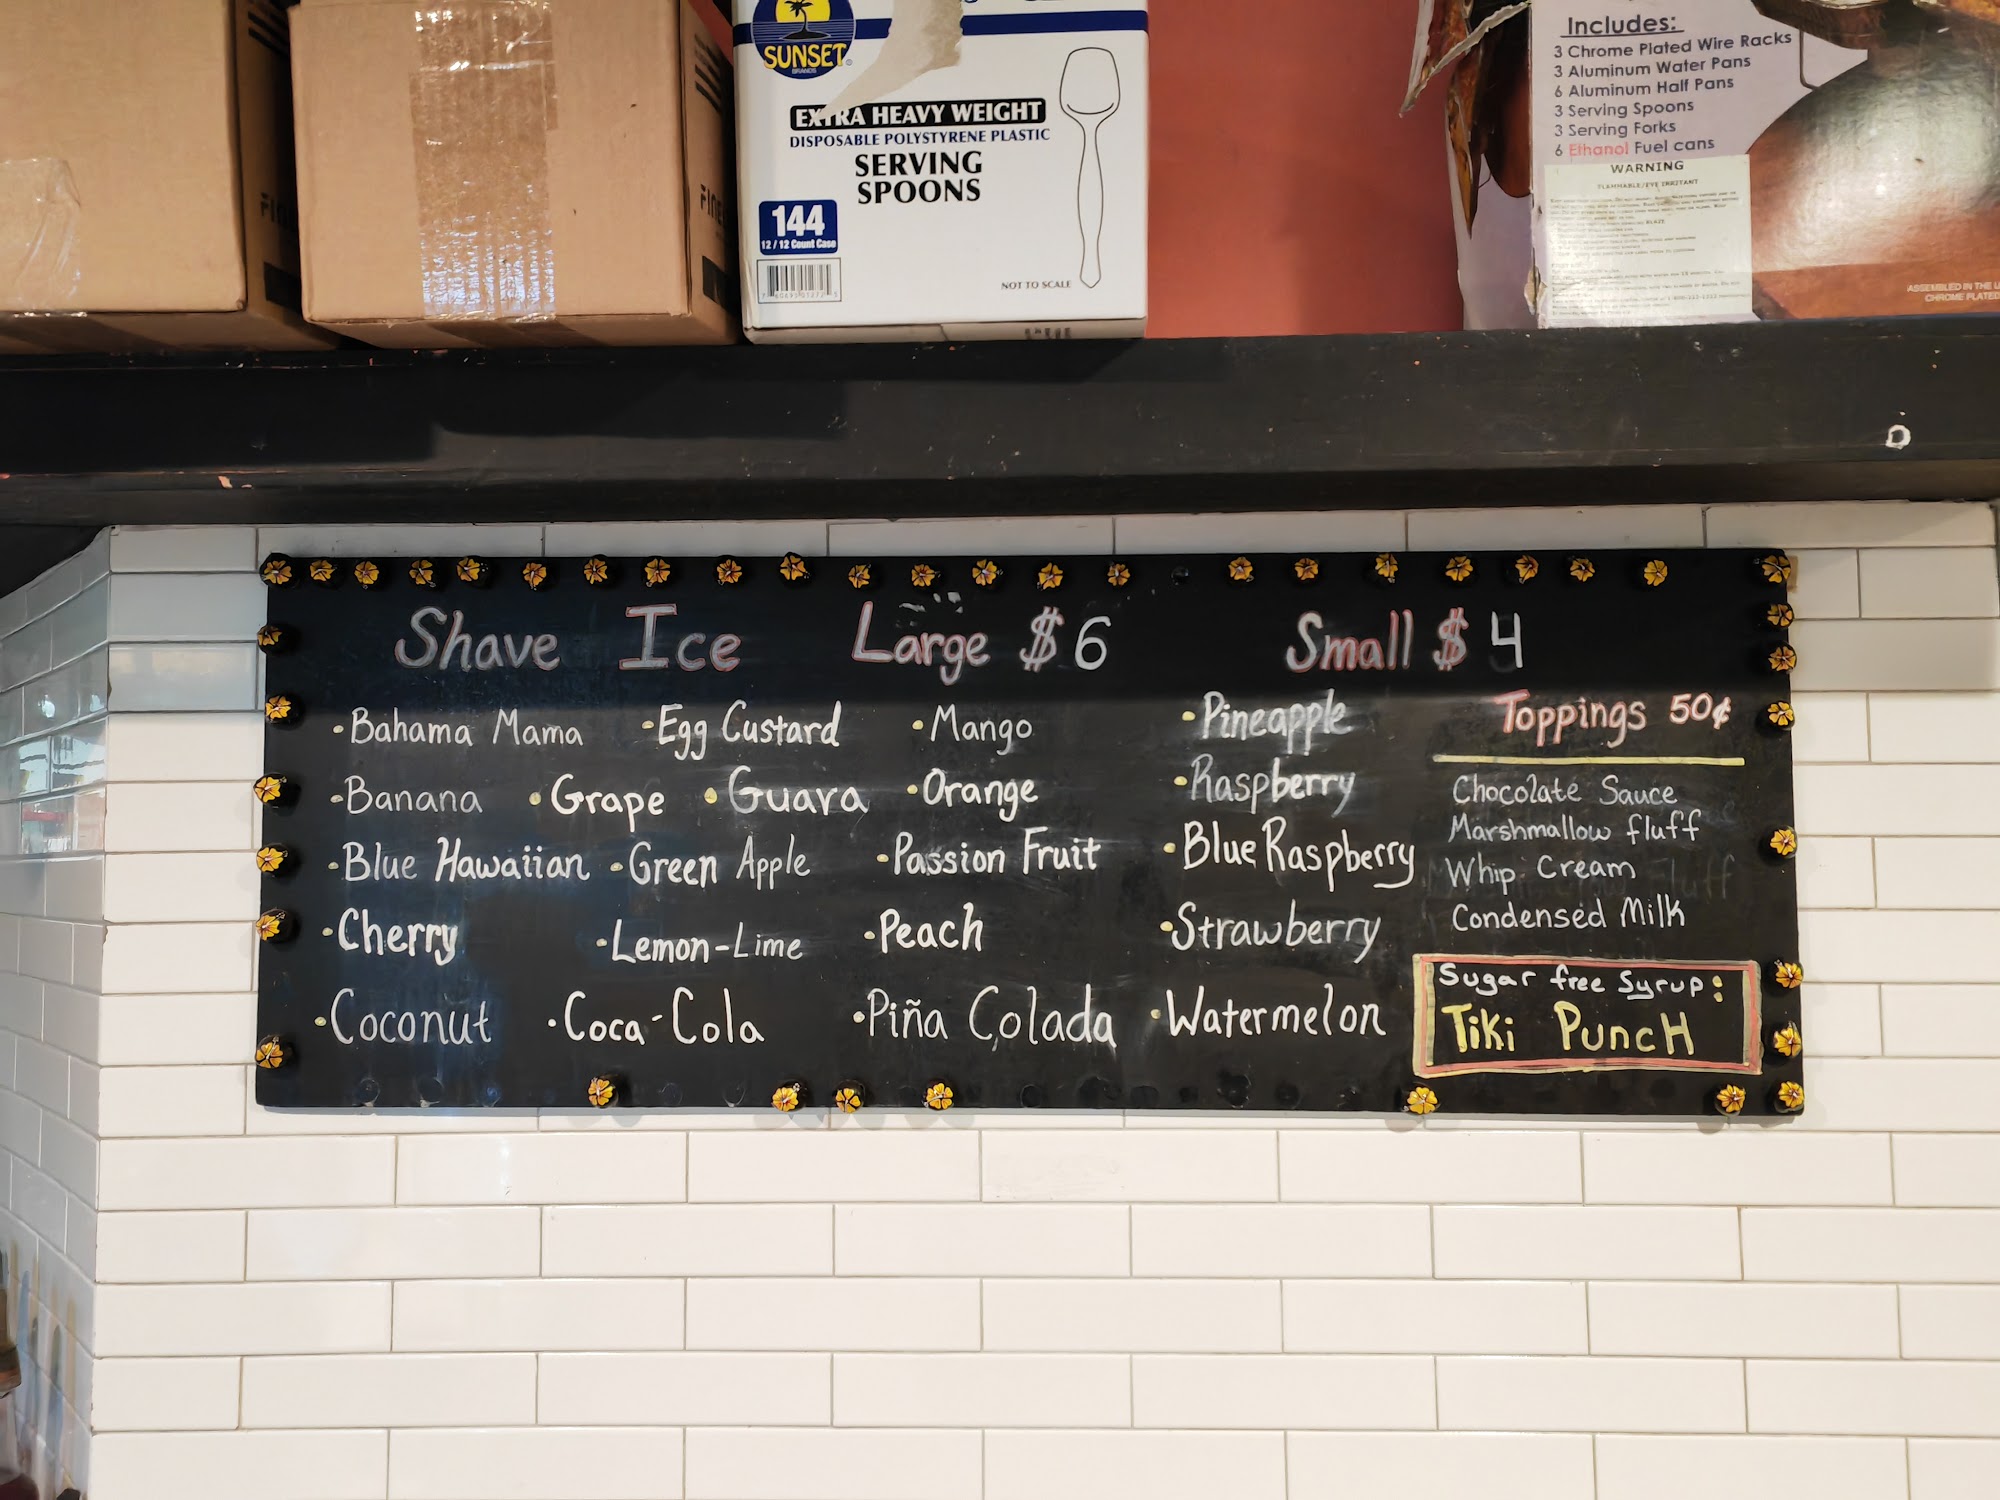 SUNSET
BRANDS
EXTRA HEAVY WEIGHT
DISPOSABLE POLYSTYRENE PLASTIC
SERVING
SPOONS
144
12 / 12 Count Case
NOT TO SCALE
Includes:
3 Chrome Plated Wire Racks
3 Aluminum Water Pans
6 Aluminum Half Pans
3 Serving Spoons
3 Serving Forks
6 Ethanol Fuel cans
WARNING
FLAMMABLE/EYE IRRITANT
ASSEMBLED IN THE
CHROME PLATED
Shave Ice Large $6 Small $4
•Bahama Mama •Egg Custard •Mango •Pineapple
•Banana •Grape •Guava •Orange •Raspberry
•Blue Hawaiian •Green Apple •Passion Fruit •Blue Raspberry
•Cherry •Lemon-Lime •Peach •Strawberry
•Coconut •Coca-Cola •Piña Colada •Watermelon
Toppings 50¢
Chocolate Sauce
Marshmallow fluff
Whip Cream
Condensed Milk
Sugar free Syrup:
Tiki Punch